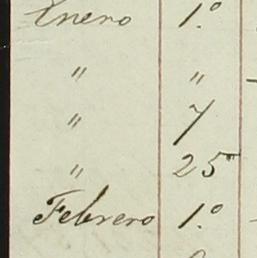 Enero 1.º
" "
" 7
" 25
Febrero 1.º